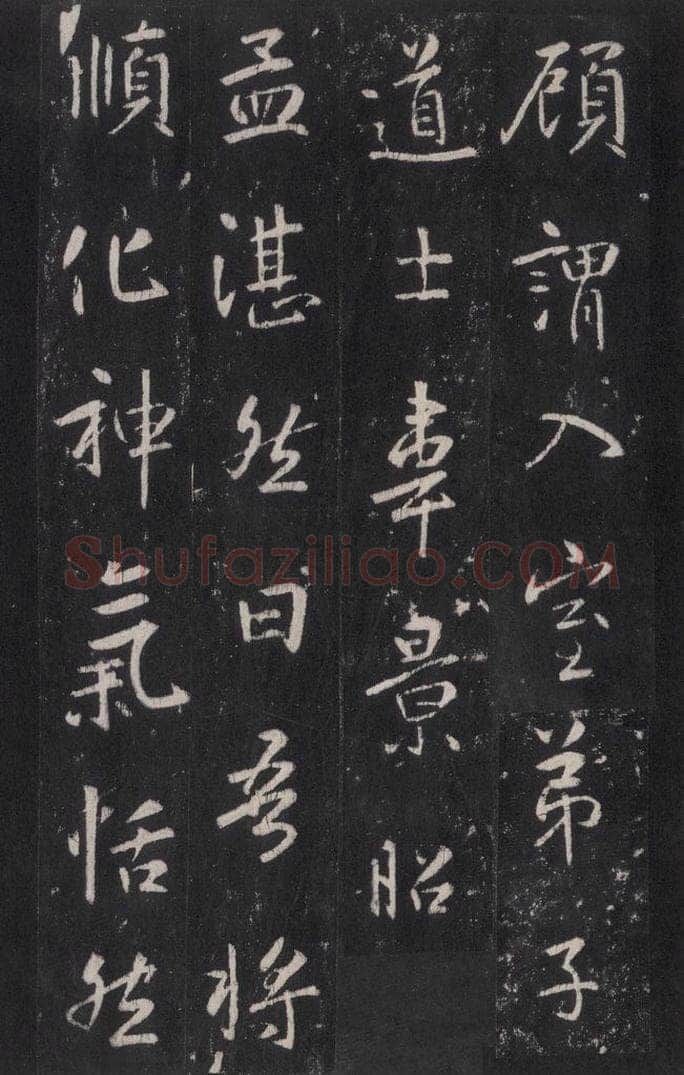 顧謂入室弟子
道士韋景昭
孟湛然曰吾將
順化神氣恬然
Shufaziliao.COM